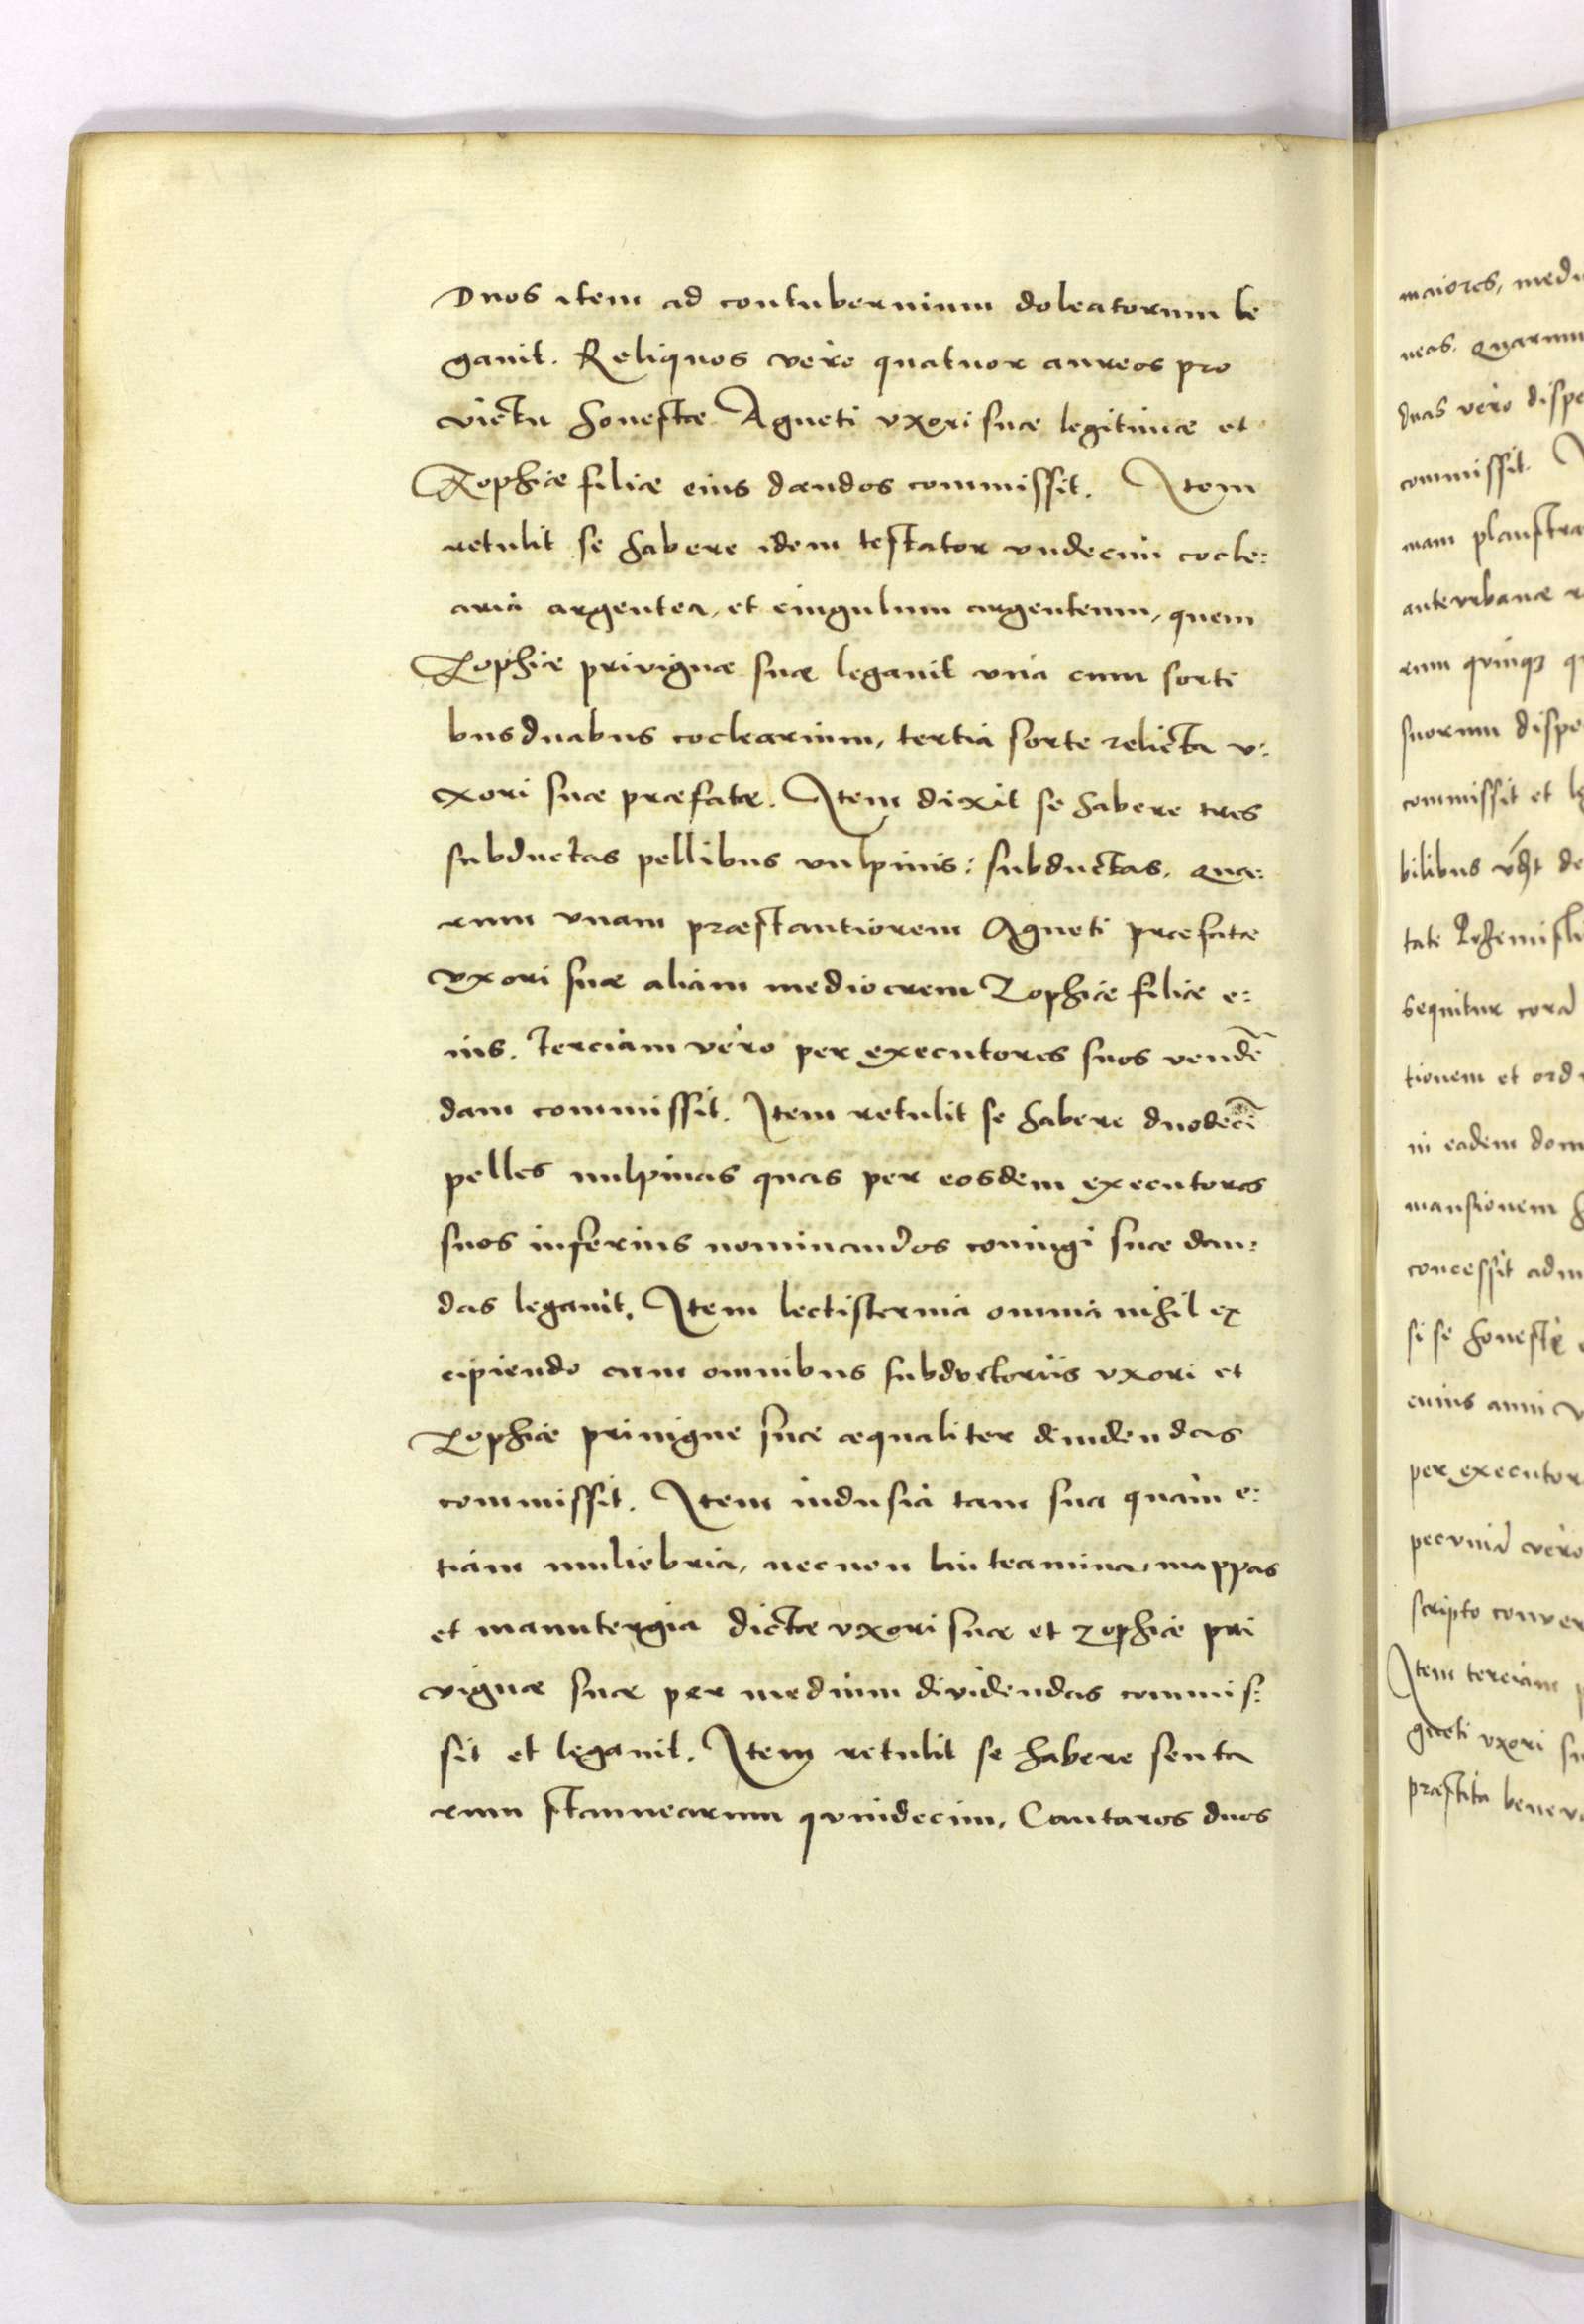 Duos item ad contubernium doleatorum le
gauit. Reliquos vero quatuor aureos pro
victu honestæ Agneti vxori suæ legitimæ et
Zophiæ filiæ eius dandos commissit. Item
retulit se habere idem testator vndecim cocle:
aria argentea, et cingulum argenteum, quem
Zophiæ privignæ suæ legauit vna cum sorti
bus duabus coclearium, tertia sorte relicta v:
xori suæ præfatæ. Item dixit se habere tres
subductas pellibus vulpinis: subductas. Qua:
rum vnam præstantiorem Agneti præfatæ
vxori suæ aliam mediocrem Zophiæ filiæ e:
ius. Terciam vero per executores suos vendē
dam commissit. Item retulit se habere duodecī
pelles uulpinas quas per eosdem executores
suos inferius nominandos coniugi suæ dan:
das legauit. Item lectisternia omnia nihil ex
cipiendo cum omnibus subductoriis vxori et
Zophiæ priuigne suæ æqualiter diuidendas
commissit. Item indusia tam sua quam e:
tiam muliebria, necnon linteamina, mappas
et manutergia dictæ vxori suæ et Zophiæ pri
vignæ suæ per medium dividendas commis:
sit et legauit. Item retulit se habere scuta
rum stannearum quindecim, Cantaros duos
maiores, medi
neas. Quarum
duas vero dispe
commissit.
nam plaustra
anteurbanæ
rum quinqȝ q
suorum dispo
commissit et le
bilibus de
tate
sequitur corā
tionem et ordi
in eadem dom
mansionem h
concessit adm
si se honeste
cuius anni v
per executor
pecuniā vero
scripto conver
Item terciam p
gneti vxori su
præstita benev